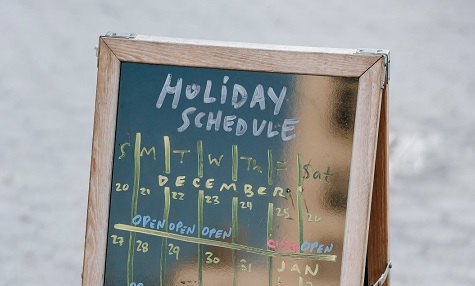 HOLIDAY
SCHEDULE
S M T W Th F Sat
DECEMBER
20 21 22 23 24 25 26
OPEN OPEN OPEN OPEN
27 28 29 30 31 JAN